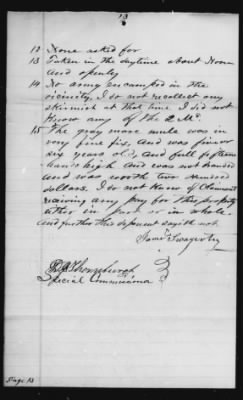 13
12 None asked for
13 Taken in the daytime about Noon
and openly
14 No army encamped in the
vicinity, I do not recollect any
skirmish at that time I did not
know any of the 2 Mc.
15 The gray mare mule was in
very fine fix, and was five or
six years old, and full fifteen
hands high and was not branded
and was worth two hundred
dollars. I do not know of Claimant
receiving any pay for this property
either in part or in whole.
And further this deponent sayeth not.
Saml Swagerty
Thornburgh
Special Commissioner
Page 13